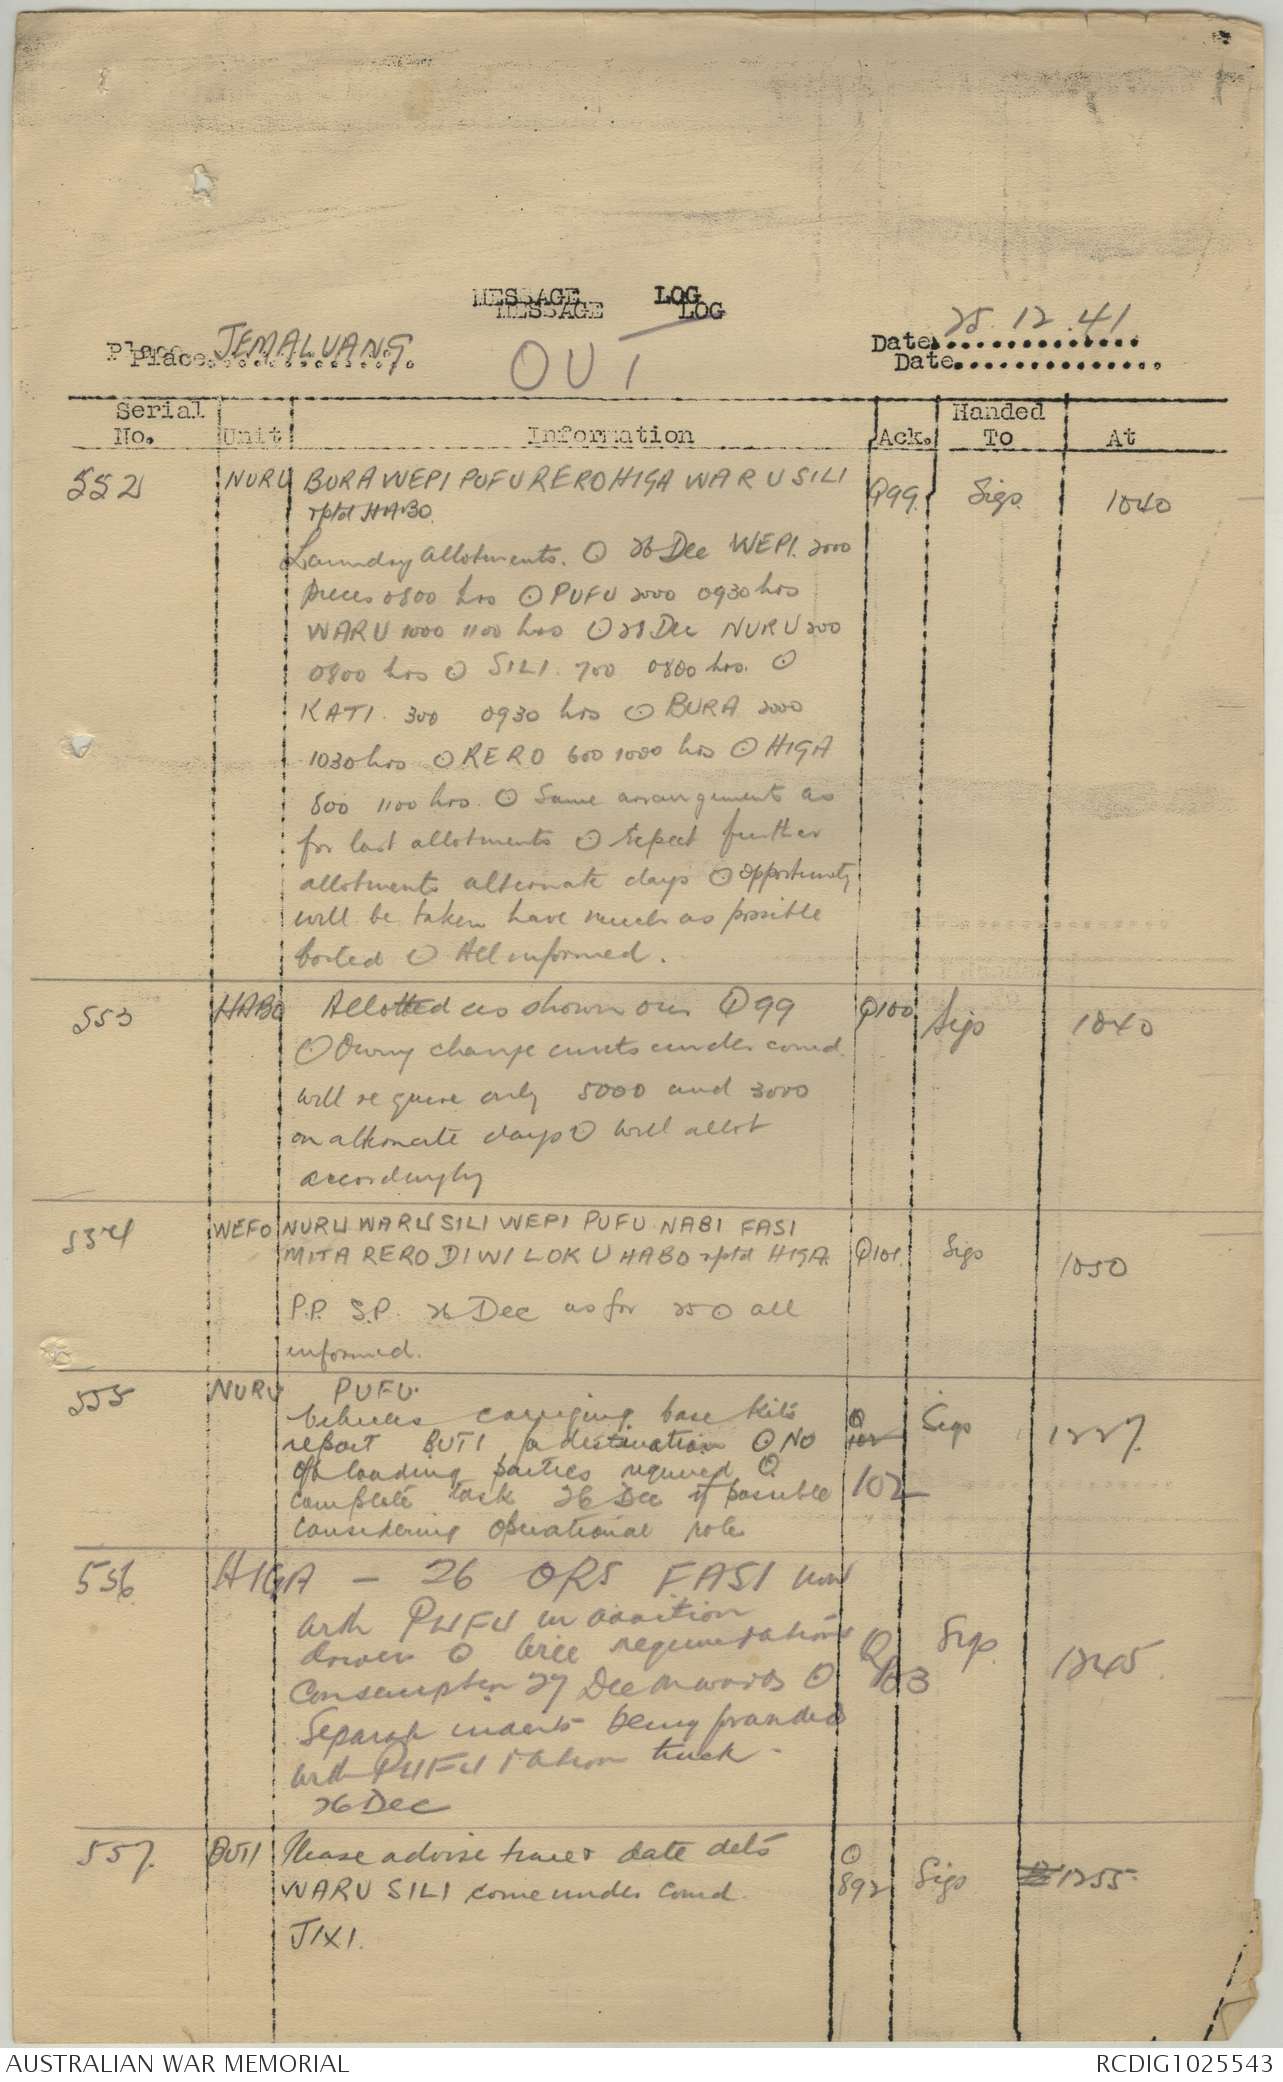 MESSAGE LOG
MESSAGE LOG
Place JEMALUANG
Place
OUT
Date 25.12.41
Date
Serial No. Unit Information Ack. Handed To At
552 NURU BURA WEPI PUFU RERO HIGA WARU SILI Q99 Sigs 1040
rptd HABO.
Laundry allotments. ⊙ 26 Dec WEPI. 2000
pieces 0800 hrs ⊙ PUFU 2000 0930 hrs
WARU 1000 1100 hrs ⊙ 28 Dec NURU 200
0800 hrs ⊙ SILI. 700 0800 hrs. ⊙
KATI. 300 0930 hrs ⊙ BURA 2000
1030 hrs ⊙ RERO 600 1000 hrs ⊙ HIGA
800 1100 hrs. ⊙ Same arrangements as
for last allotments ⊙ Expect further
allotments alternate days ⊙ opportunity
will be taken have much as possible
boiled ⊙ All informed.
553 HABO Allotted as shown our Q99 Q100 Sigs 1040
⊙ Owing change units under comd
will require only 5000 and 3000
on alternate days ⊙ will allot
accordingly
554 WEFO NURU WARU SILI WEPI PUFU NABI FASI
MITA RERO DIWI LOKU HABO rptd HIGA. Q101. Sigs 1050
P.P. S.P. 26 Dec as for 25 ⊙ all
informed.
555 NURU PUFU.
Vehicles carrying base kits Q Sigs 1227.
report BUTI destination ⊙ NO 102
off loading parties required ⊙
complete task 26 Dec if possible 102
considering operational role
556 HIGA - 26 ORS FASI now
with PUFU in
drawn ⊙ Sigs
Consumption 27 Dec onwards ⊙ Q103 1245.
Separate indents being forwarded
with PUFU ration truck.
26 Dec
557. BUTI Please advise time & date dets O
WARU SILI come under comd. 892 Sigs 1255.
JIXI.
AUSTRALIAN WAR MEMORIAL RCDIG1025543